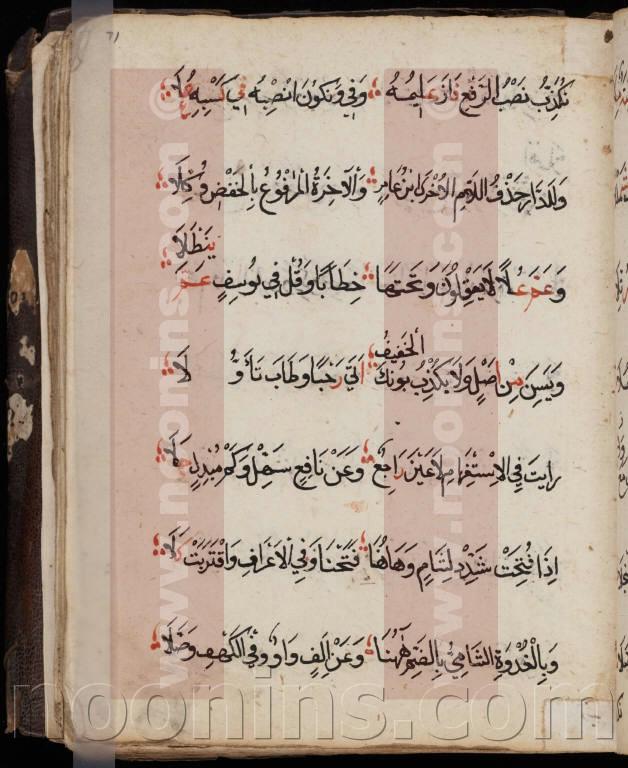 ٦١
نكذب نصب الرفع فاز عليمه وفي ونكون انصبه في كسبه علا
وللدار حذف اللام الاخرى ابن عامر والآخرة المرفوع بالخفض وكلا
وعم علا لا يعقلون وتحتها خطابا وقل في يوسف عم ينطلا
ويسن من اصل ولا يكذبونك الخفيف اتى رحبا وطاب تأولا
رايت في الاستفهام لا عين راجع وعن نافع سهل وكم مبدل جلا
اذا فتحت شدد لشام وهاهنا فتحنا وفي الاعراف واقتربت كلا
وبالغدوة الشامي بالضم هاهنا وعن الف واو وفي الكهف وصلا
www.noonins.com ©
www.noonins.com ©
noonins.com